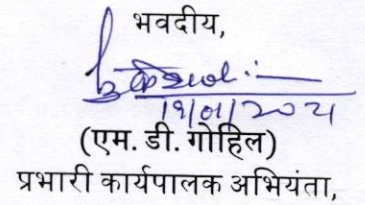 भवदीय,
19/01/2021
(एम. डी. गोहिल)
प्रभारी कार्यपालक अभियंता,